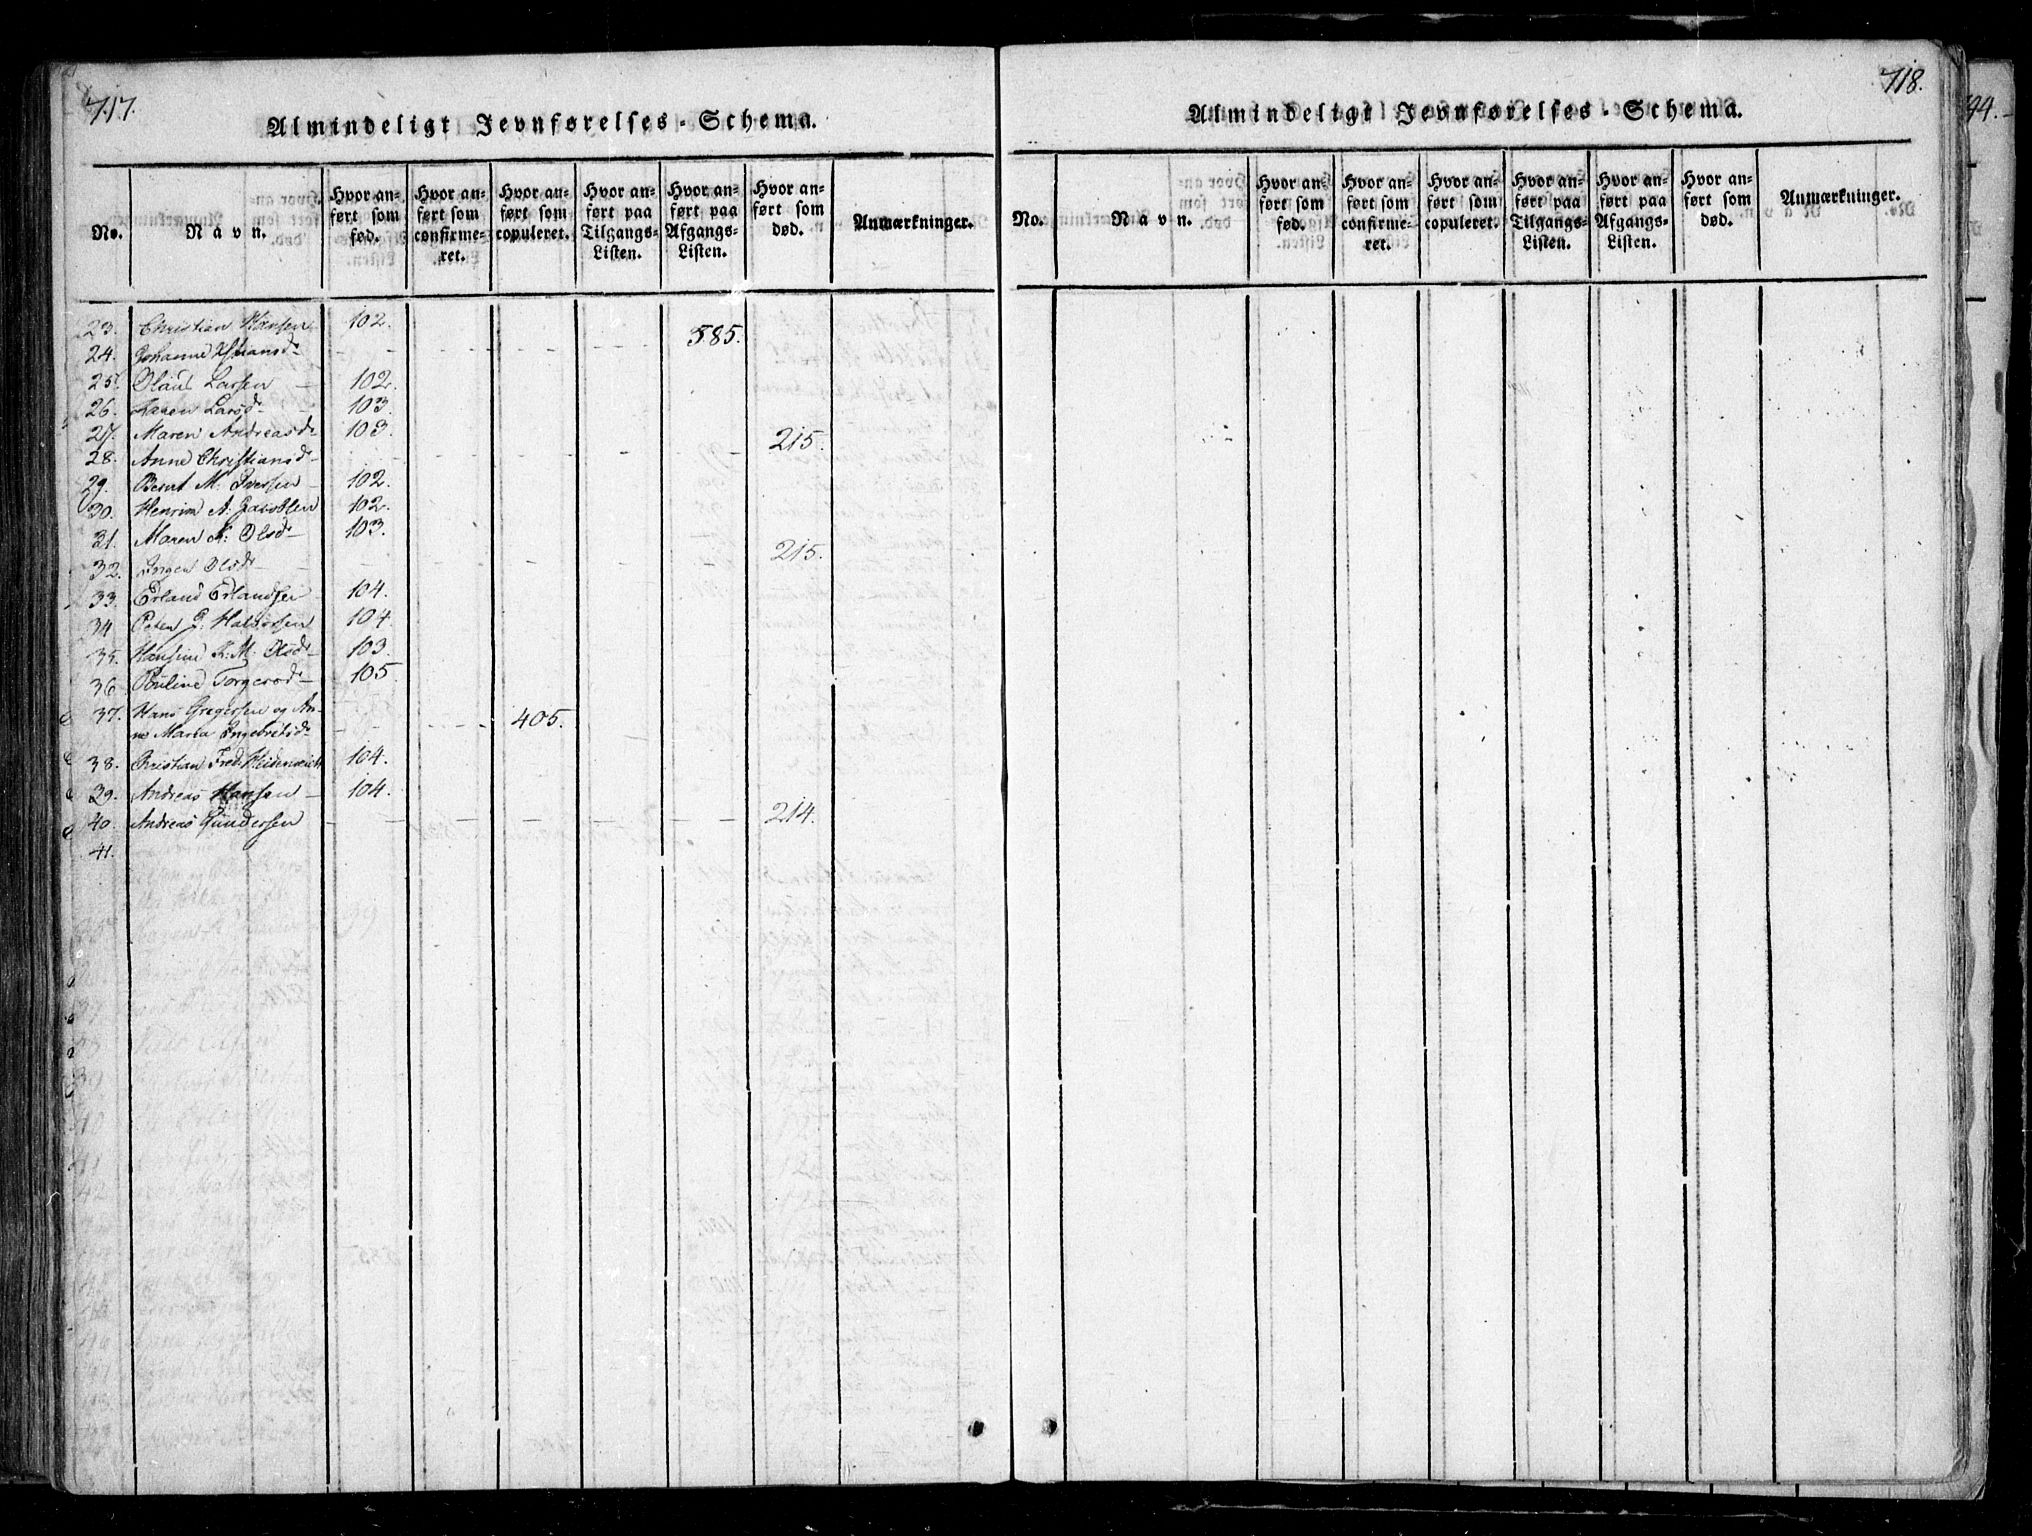 717.
Almindeligt Jevnførelses-Schema.
No. Navn. Hvor anført som fød. Hvor anført som confirmeret. Hvor anført som copuleret. Hvor anført paa Tilgangs-Listen. Hvor anført paa Afgangs-Listen. Hvor anført som død. Anmærkninger.
23. Christian Hansen 102.
24. Johanne Hansd 585.
25. Olaus Larsen 102.
26. Karen Larsd 103.
27. Maren Andreasd 103.
28. Anne Christiansd 215.
29. Bernt M. Iversen 102.
30. Henrik A. Jacobsen 102.
31. Maren K. Olsd 103.
32. Ingen Olsd 215.
33. Erland Erlandsen 104.
34 Peter G. Halvorsen 104.
35. Hansine K. M. Olsd 103.
36 Pauline Torgersd 105.
37. Hans Gregersen og An-
ne Maria Ingebretsd 405.
38. Christian Fred. Heidenreich 104.
39. Andreas Hansen 104.
40. Andreas Gundersen 214.
41.
718.
Almindeligt Jevnførelses-Schema.
No. Navn. Hvor anført som fød. Hvor anført som confirmeret. Hvor anført som copuleret. Hvor anført paa Tilgangs-Listen. Hvor anført paa Afgangs-Listen. Hvor anført som død. Anmærkninger.